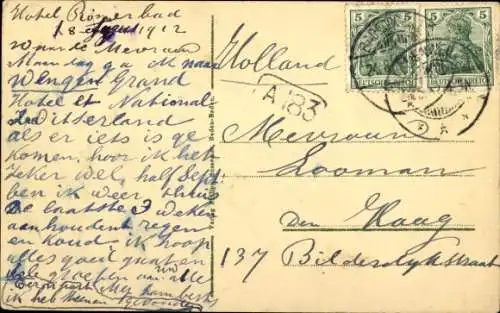 Hotel Römerbad
18 August 1912
Waarde Mevrouw
Maandag ga ik naar
Wengen Grand
Hotel et National
Zwitserland
als er iets is ge
komen, hoor ik het
zeker wel, half Sept
ben ik weer thuis
De laatste 3 weken
aanhoudend regen
en koud, ik hoop
alles goed gaat en
vele groeten van alle
ik heb
Holland
A 183
Mevrouw
Looman
den Haag
137 Bilderdijkstraat
5 5
DEUTSCHES REICH